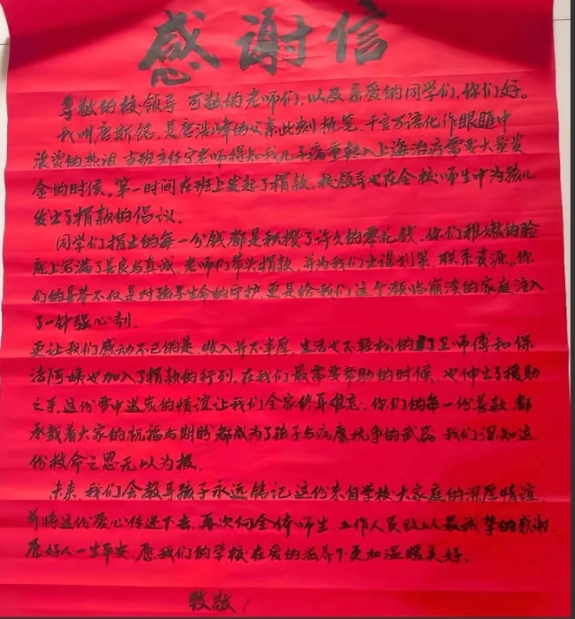 感谢信
尊敬的校领导 可敬的老师们,以及亲爱的同学们,你们好。
我叫唐斯铭,是唐浩峰的父亲此刻执笔,千言万语化作眼眶中
滚烫的热泪 当班主任宁老师得知我儿子病重转入上海治疗需要大量资
金的时候。第一时间在班上发起了捐款,校领导也在全校师生中为孩儿
发出了捐款的倡议。
同学们捐出的每一分钱都是积攒了许久的零花钱。你们稚嫩的脸
庞上写满了善良与真诚 老师们带头捐款,并为我们出谋划策 联系资源。你
们的善举不仅是对孩子生命的守护,更是给我们这个濒临崩溃的家庭注入
了一针强心剂.
更让我们感动不已的是,收入并不丰厚,生活也不轻松的门卫师傅和保
洁阿姨也加入了捐款的行列.在我们最需要帮助的时候,也伸出了援助
之手,这份雪中送炭的情谊让我们全家终身难忘。你们的每一份善款 都
承载着大家的祝福与期盼都成为了孩子与病魔抗争的武器 我们深知这
份救命之恩无以为报。
未来,我们会教导孩子永远铭记这份来自学校大家庭的深厚情谊
并将这份爱心传递下去,再次向全体师生 工作人员致以最诚挚的感谢
愿好人一生平安,愿我们的学校在爱的滋养下更加温暖美好。
致敬!